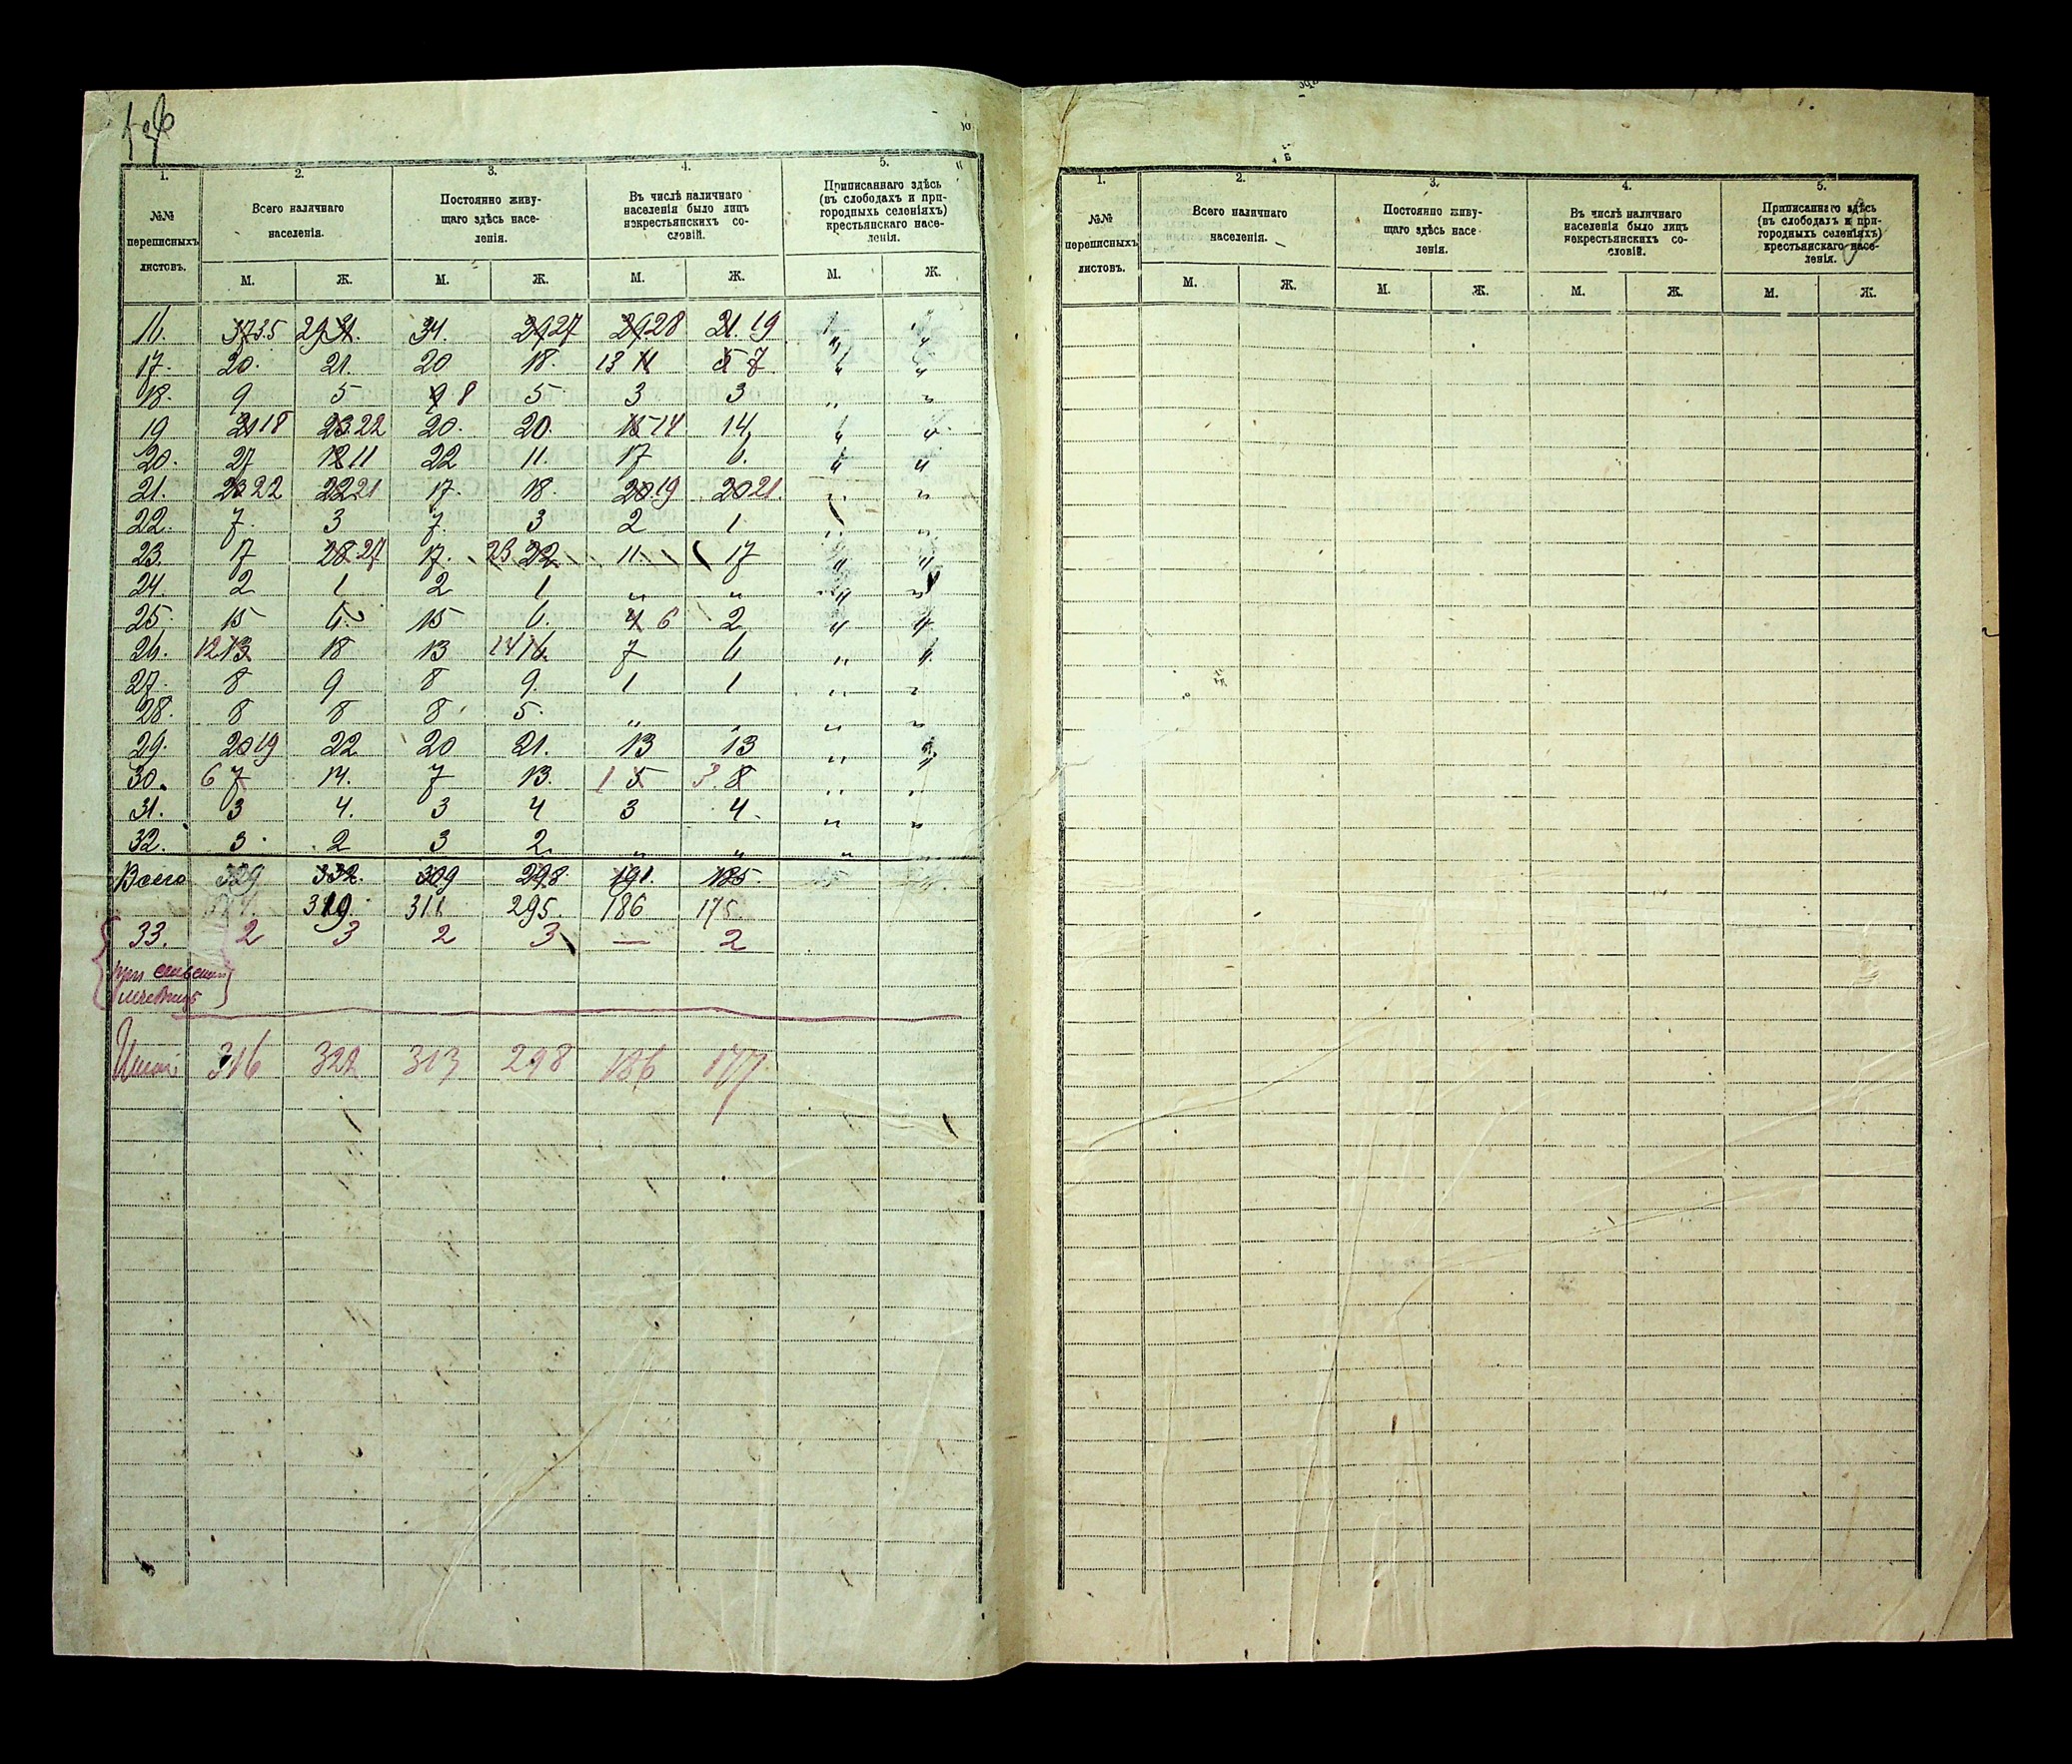 1. 2. 3. 4. 5.
№№ переписныхъ листовъ.
Всего наличнаго населенія.
Постоянно живущаго здѣсь населенія.
Въ числѣ наличнаго населенія было лицъ некрестьянскихъ сословій.
Приписаннаго здѣсь (въ слободахъ и пригородныхъ селеніяхъ) крестьянскаго населенія.
М. Ж. М. Ж. М. Ж. М. Ж.
16. 37 35 29 31. 34. 29 27 29. 28 21. 19 " "
17. 20. 21. 20. 18. 13 11 5 7 " "
18. 9 5 9 8 5 3 3 " "
19 21 18 23 22 20. 20. 15 14 14 " "
20. 27 12 11 22 11. 17 6. " "
21. 23 22 22 21 17. 18. 20 19 20 21. " "
22. 7. 3 7. 3 2 1. " "
23. 17 28 27 17. 23 22 11. 17 " "
24. 2 1 2 1 " " " "
25. 15 6. 15 6. 4 6 2 " "
26. 12 13 18 13 14 16. 7 6 " "
27. 8 9 8 9. 1 1 " "
28. 8 8 8 5. " " "
29. 20 19 22 20 21. 13 13 " "
30. 6 7 14. 7 13. 1 5 3 8 " "
31. 3 4. 3 4 3 4. " "
32. 3. 2 3 2. " " " "
Всего 329 332. 309 298 191. 185.
319. 311 295. 186 175.
33. 2 3 2 3 — 2
при
316 322 313 298 186 177
1. 2. 3. 4. 5.
№№ переписныхъ листовъ.
Всего наличнаго населенія.
Постоянно живущаго здѣсь населенія.
Въ числѣ наличнаго населенія было лицъ некрестьянскихъ сословій.
Приписаннаго здѣсь (въ слободахъ и пригородныхъ селеніяхъ) крестьянскаго населенія.
М. Ж. М. Ж. М. Ж. М. Ж.